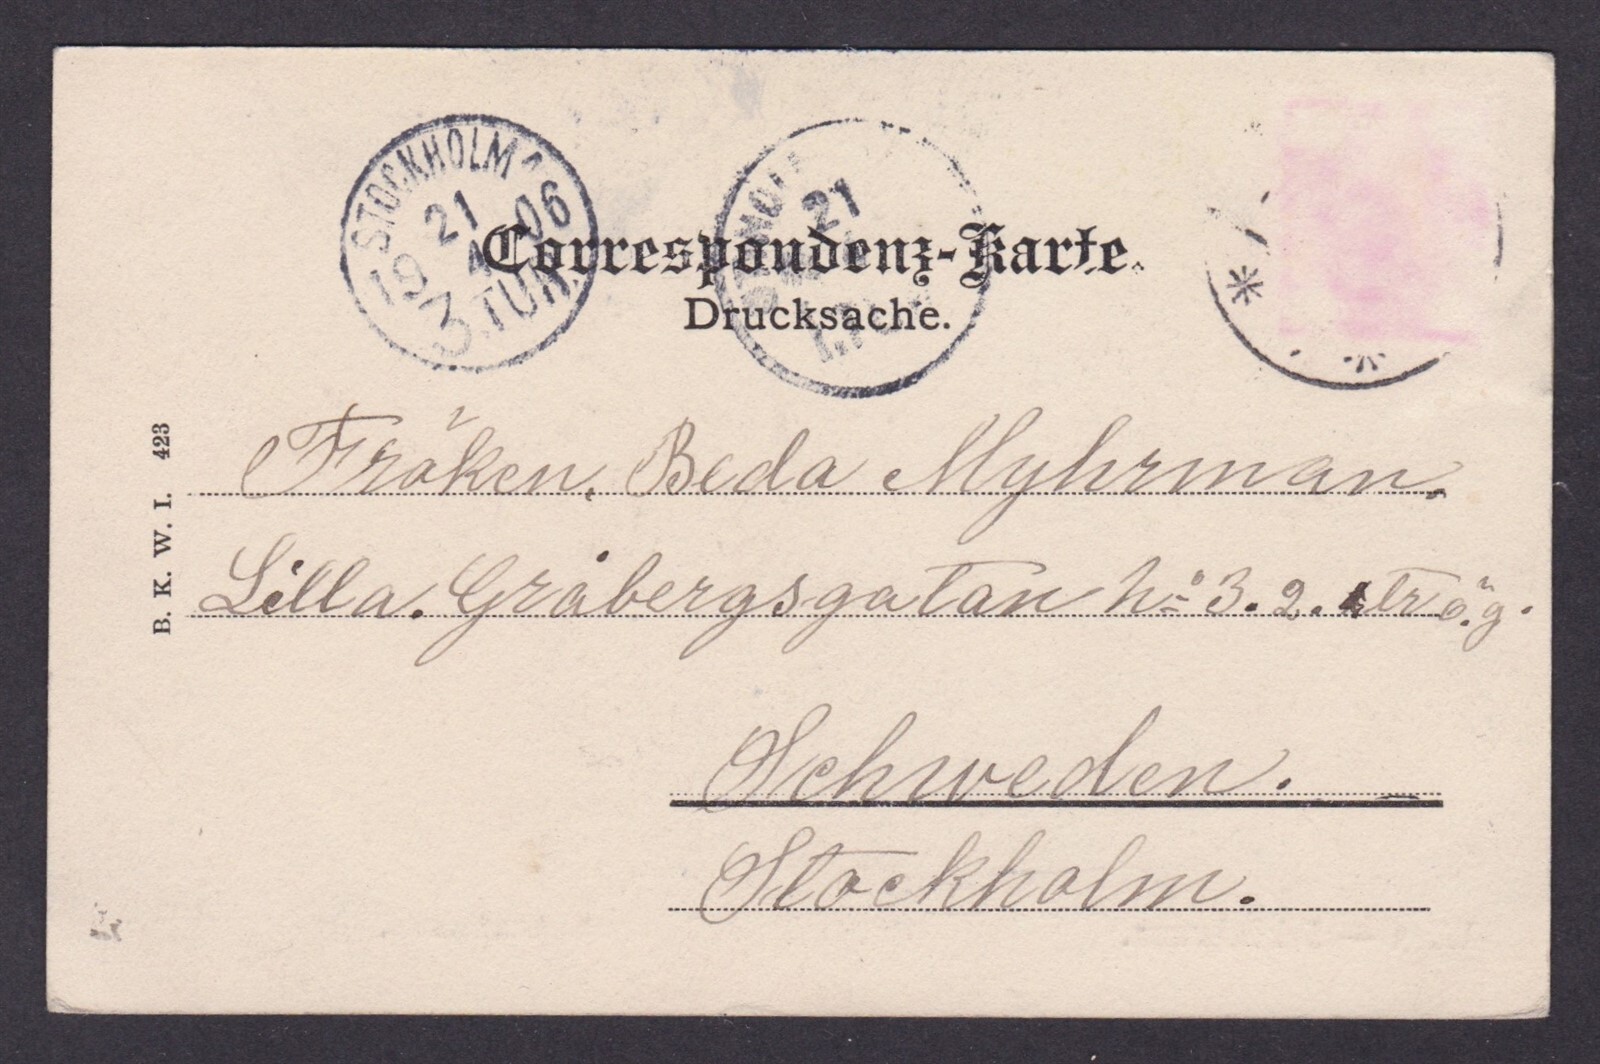 STOCKHOLM
21
4
19 06
3.TUR.
21
Correspondenz-Karte.
Drucksache.
B. K. W. I. 423
Fröken, Beda Myhrman.
Lilla. Gråbergsgatan No 3. 2. tr ö. g.
Schweden.
Stockholm.